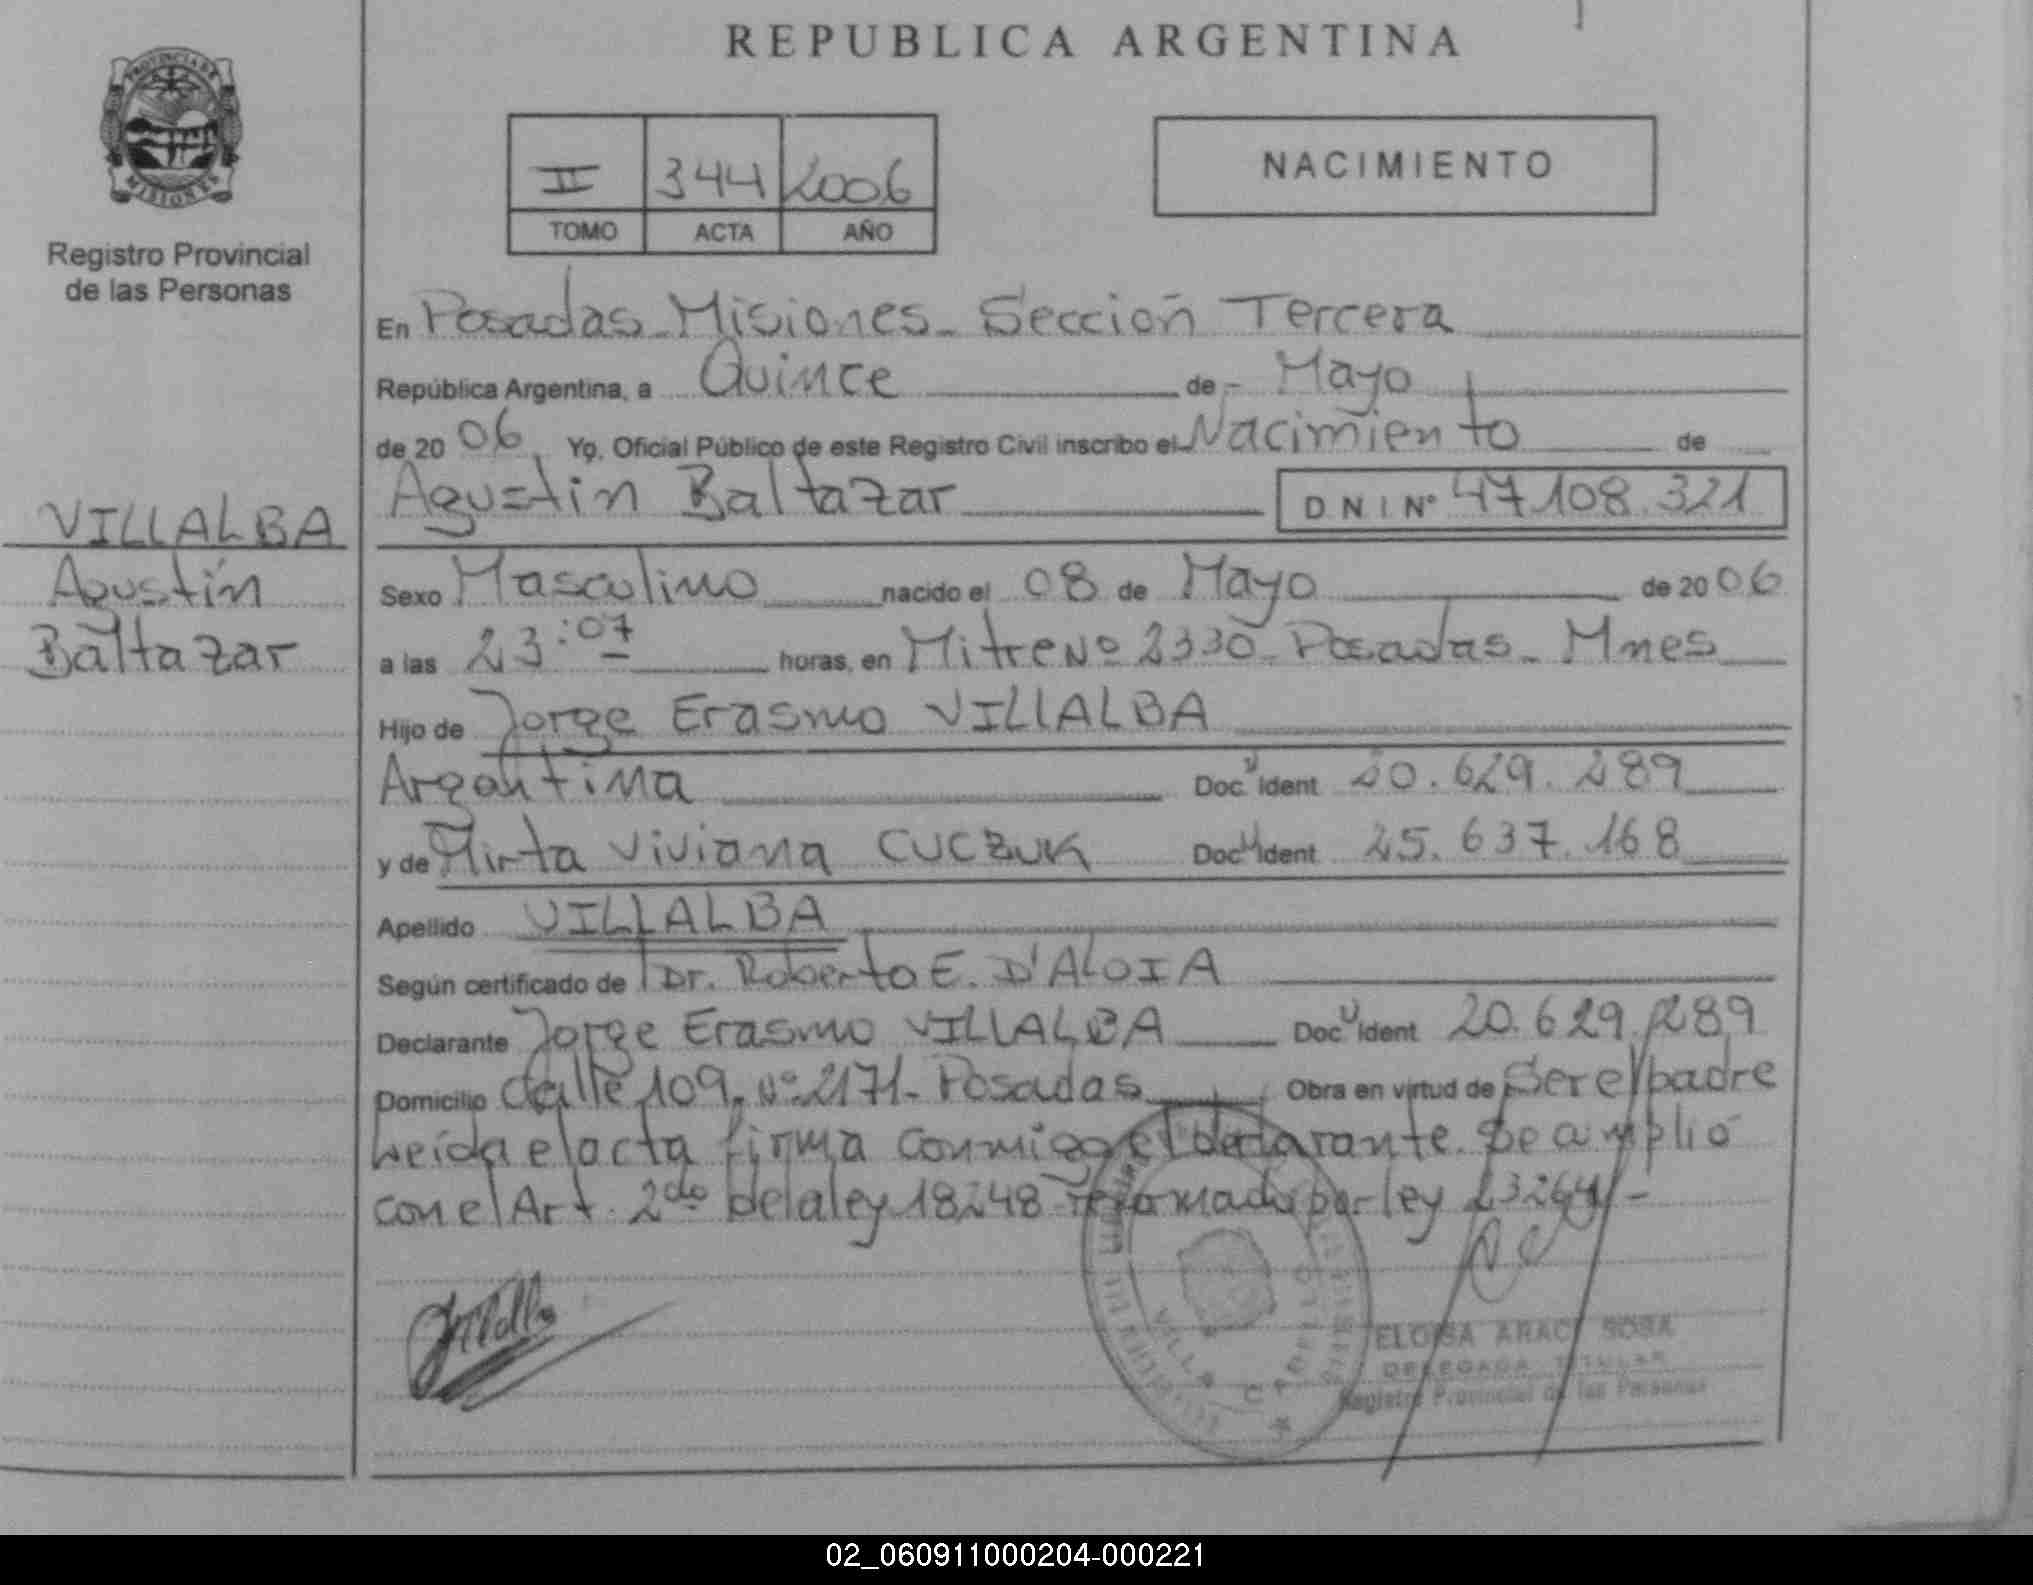 REPUBLICA ARGENTINA
PROVINCIA DE
MISIONES
Registro Provincial
de las Personas
II 344 2006
TOMO ACTA AÑO
NACIMIENTO
En Posadas - Misiones - Sección Tercera
República Argentina, a Quince de - Mayo
de 20 06 Yo, Oficial Público de este Registro Civil inscribo el Nacimiento de
Agustin Baltazar D N I Nº 47108.321
VILLALBA
Agustín
Baltazar
Sexo Masculino nacido el 08 de Mayo de 20 06
a las 23:07 horas, en Mitre Nº 2330 - Posadas - Mnes
Hijo de Jorge Erasmo VILLALBA
Argentina Doc. U Ident 20.629.289
y de Mirta Viviana CUCZUK Doc U Ident 25.637.168
Apellido VILLALBA
Según certificado de Dr. Roberto E. D'ALOIA
Declarante Jorge Erasmo VILLALBA Doc U Ident 20.629.289
Domicilio Calle 109. Nº 2171 - Posadas Obra en virtud de Ser el padre
Leída el acta firma conmigo el declarante. Se amplió
con el Art. 2do de la ley 18248 reformado por ley 23264 -
VILLA CABELLO
ELOISA ARACI SOSA
DELEGADA TITULAR
Registro Provincial de las Personas
02_060911000204-000221